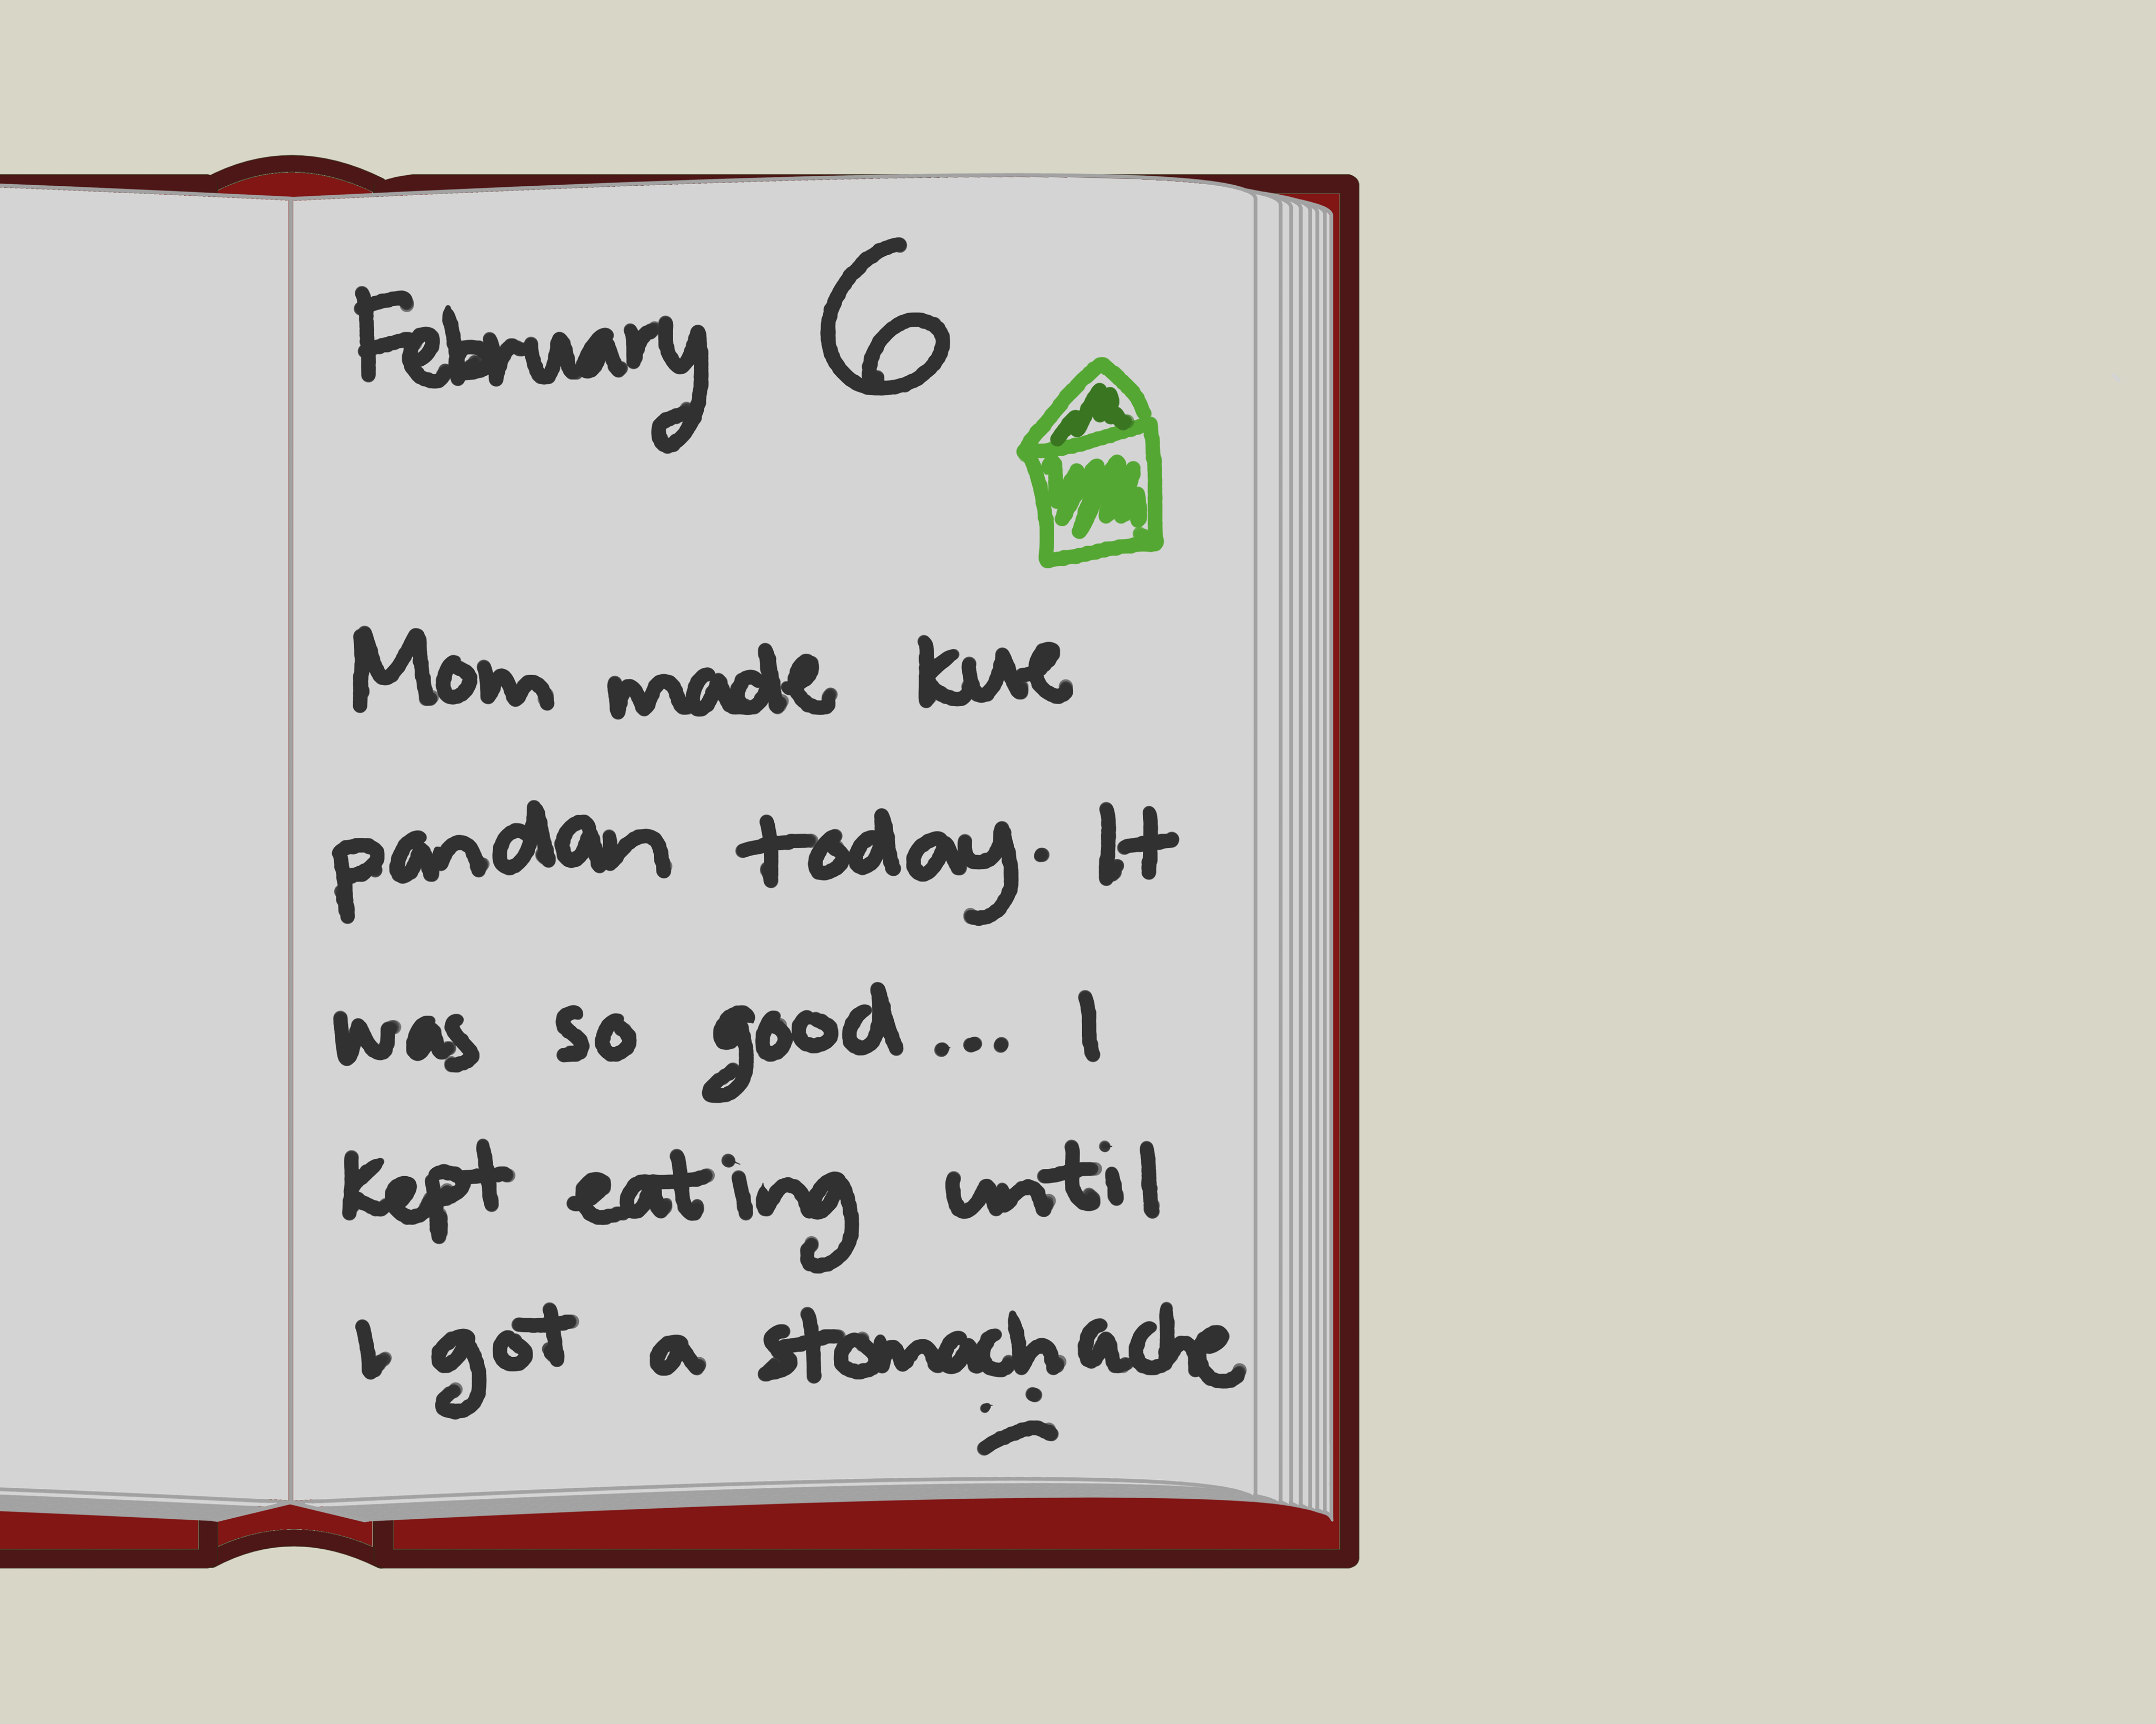 February 6
Mom made kue
pandan today. It
was so good... I
kept eating until
I got a stomach ache